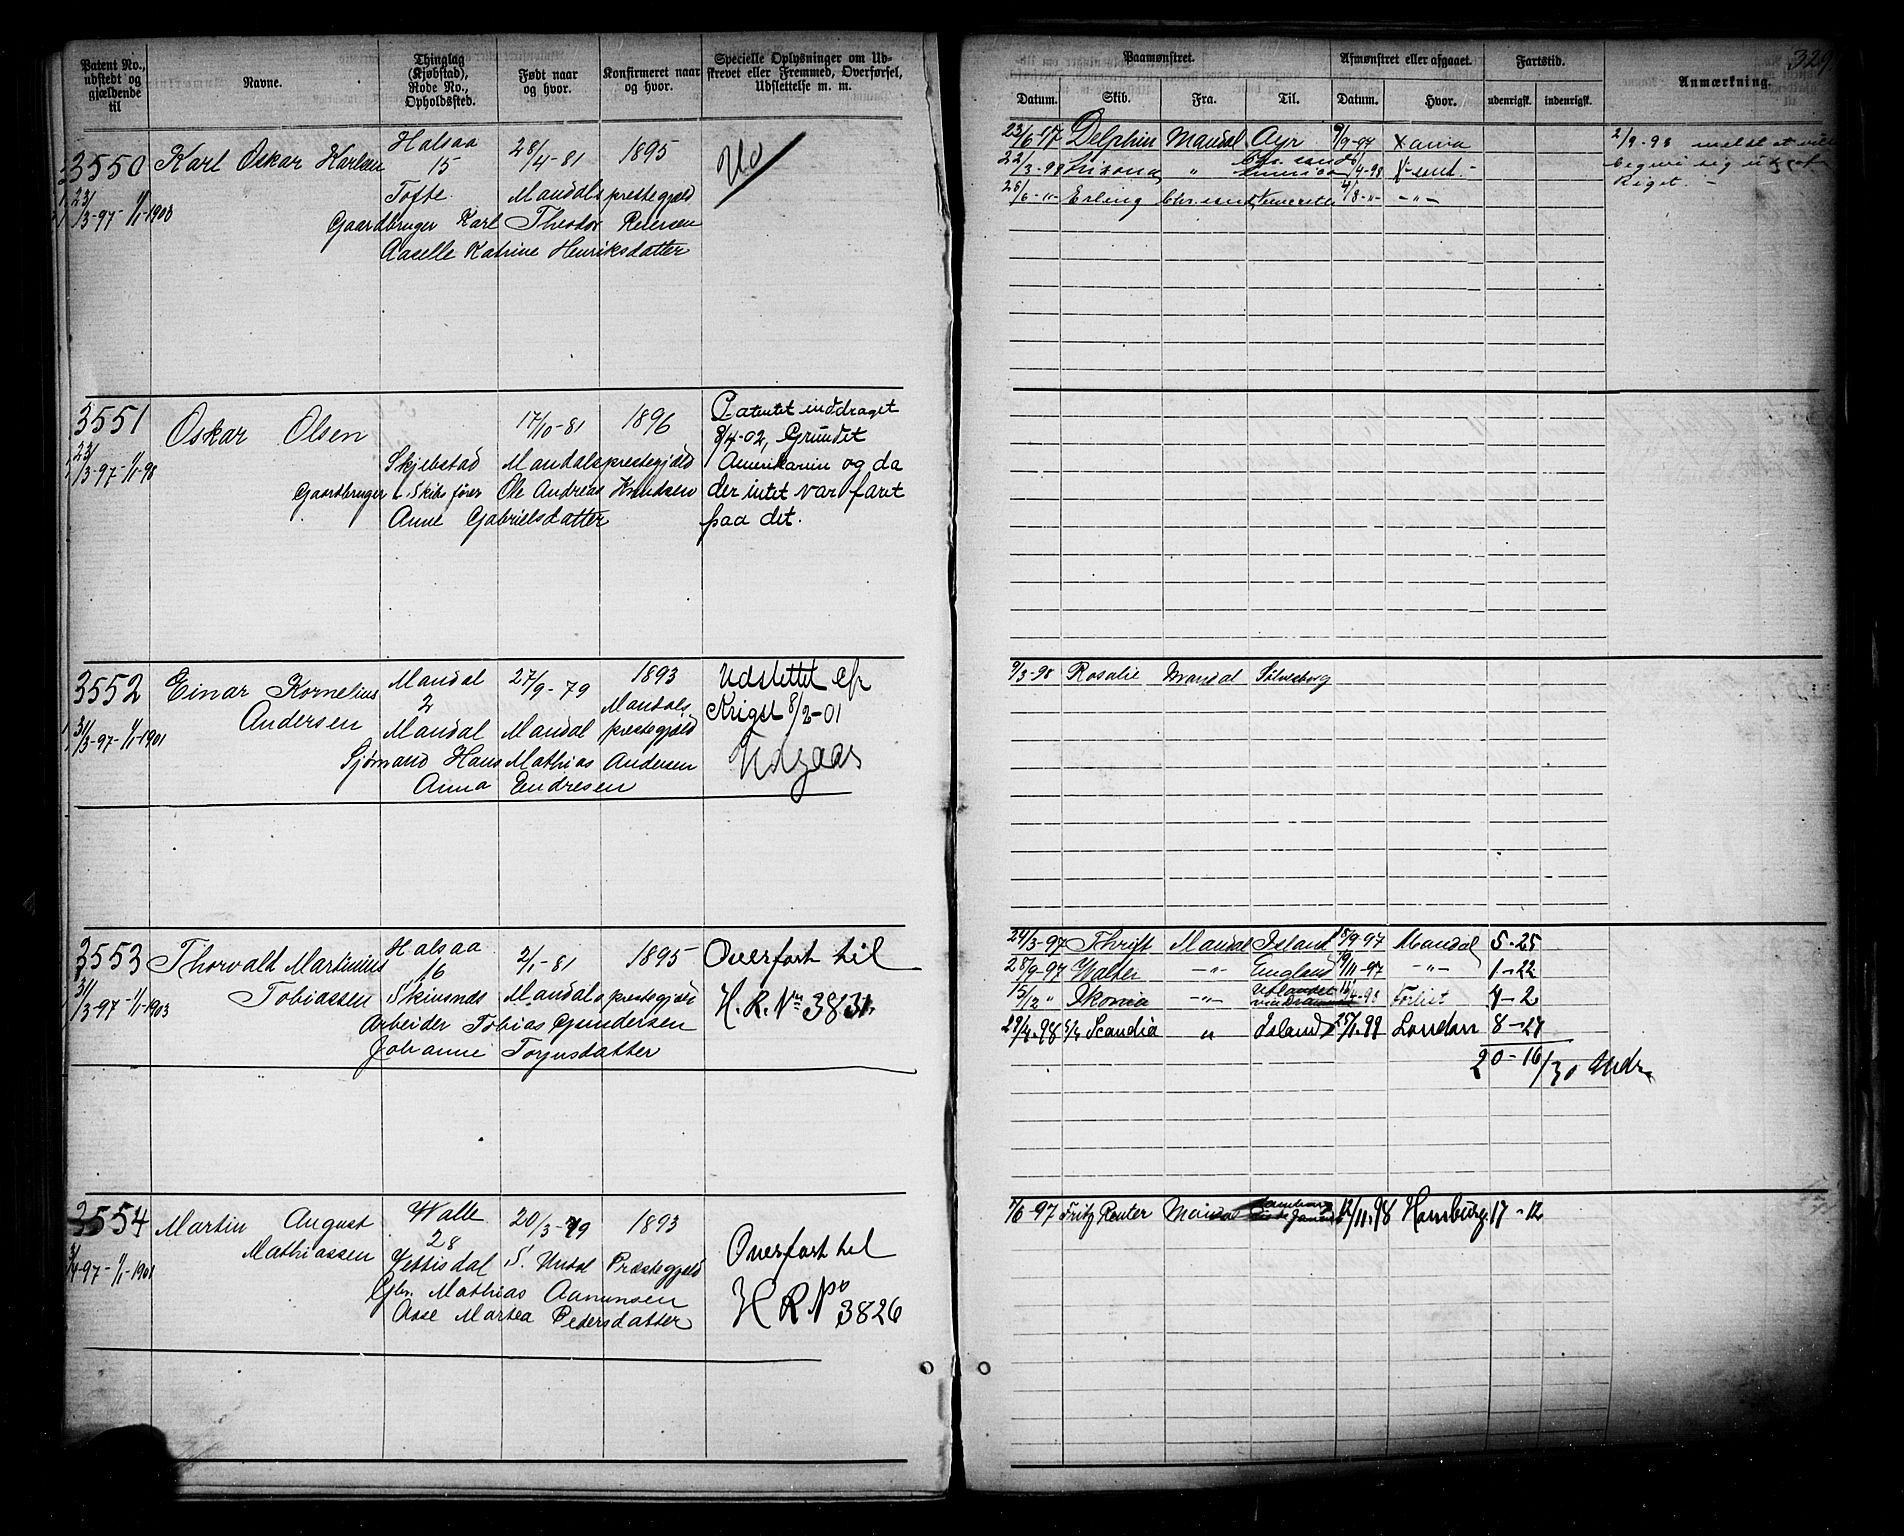 Patent No., udstedt og gjældende til
Navne.
Thinglag (Kjøbstad), Rode No., Opholdssted.
Født naar og hvor.
Konfirmeret naar og hvor.
Specielle Oplysninger om Udskrevet eller Fremmed, Overførsel, Udslettelse m. m.
Paamønstret.
Datum.
Skib.
Fra.
Til.
Afmønstret eller afgaaet.
Datum.
Hvor.
Fartstid.
udenrigsk.
indenrigsk.
Anmærkning.
329
3550 Karl Oskar Karlsen Halsaa 28/4-81 1895
15
23/3-97-1/1-1903 Tofte Mandals prestegjæld
Gaardbruger Karl Theodor Petersen
Aaselle Katrine Henriksdatter
23/6-97 Delphin Mandal Ayr 9/9-97 Xania
22/3-98 " 4-98
25/6-" Erling Chr.sand 4/8-" -"-
2/9-98 meldt at ville
begive sig ud af
Riget. -
3551 Oskar Olsen 17/10-81 1896 Patentet inddraget
8/4-02, Grundet
23/3-97-1/1-98 Skjebstad Mandals prestegjæld Amerikanin og da
Gaardbruger & Skibsfører Ole Andreas Knudsen der intet var faret
Anne Gabrielsdatter paa det.
3552 Einar Kornelius Mandal 27/9-79 1893 Udslettet ef
Andersen 2 Mandals Krigst 8/2-01
31/3-97-1/1-1901 Mandal Mandal prestegjæld
Sjømand Hans Mathias Andersen Udgaar
Anna Endresen
9/3-98 Rosalie Mandal Sölvesborg
3553 Thorvald Martinius Halsaa 2/1-81 1895 Overført til
16
31/3-97-1/1-1903 Tobiassen Skivsnds Mandals prestegjæld H.R. No 3831.
Arbeider Tobias Gundersen
Johanne Torjusdatter
24/3-97 Thrift Mandal Island 18/9-97 Mandal 5-25
28/9-97 Walter -"- England 19/11-97 -"- 1-22
15/12 " Ikonia -"- Udlandet 16/4-98 Forlist 4-2
29/4.98 S/k Scandia " Island 25/1.99 London 8-27
20-16/30 Mdr
3554 Martin August Walle 20/3-79 1893
Mathiassen 28 Overført til
3/4-97-1/1-1901 Vettisdal S. Undal Præstegjæld
Gbr. Mathias Aanunsen H R No
Asse Martea Pedersdatter 3826
7/6-97 Fritz Reuter Mandal 12/11.98 Hamburg 17-12